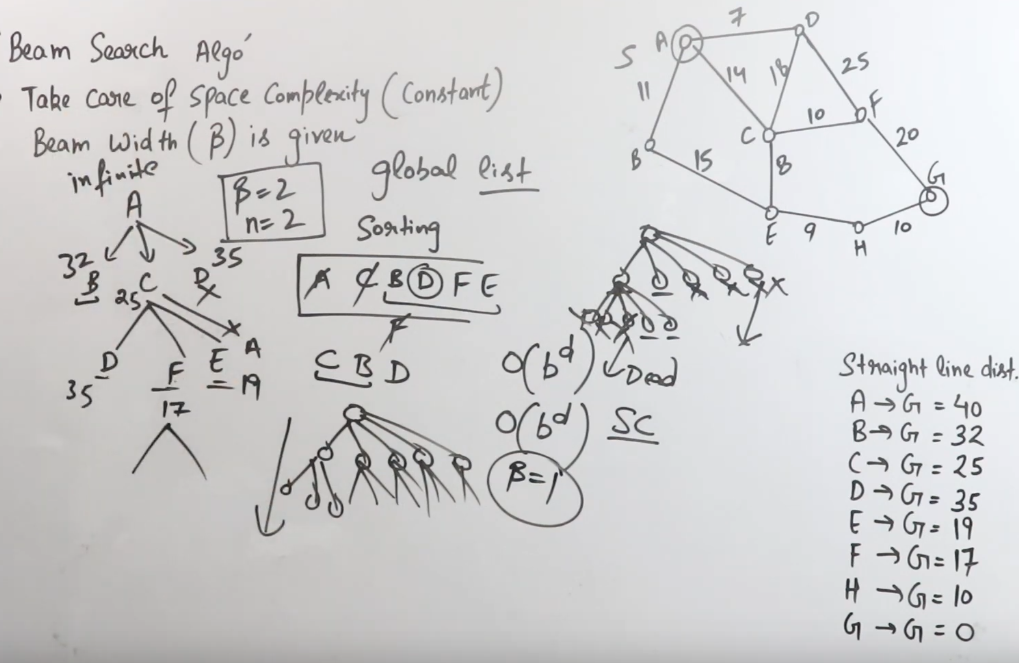 Beam Search Algo
Take Care of Space Complexity (Constant)
Beam Width (β) is given
infinite
β=2
n=2
global list
Sorting
A
32
B
C
25
D
35
A C B D F E
F
C B D
D
35
F
17
E
= 19
A
O(b^d)
Dead
O(b^d) SC
β=1
S
A
7
D
11
14
18
25
C
10
F
20
B
15
8
G
E
9
H
10
Straight line dist.
A → G = 40
B → G = 32
C → G = 25
D → G = 35
E → G = 19
F → G = 17
H → G = 10
G → G = 0